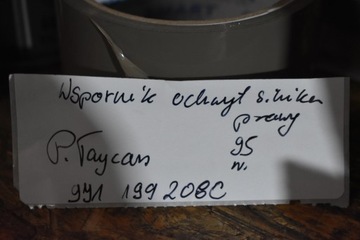 Wspornik uchwyt silnika
prawy
P. Taycan 95
N.
9J1 199 208C